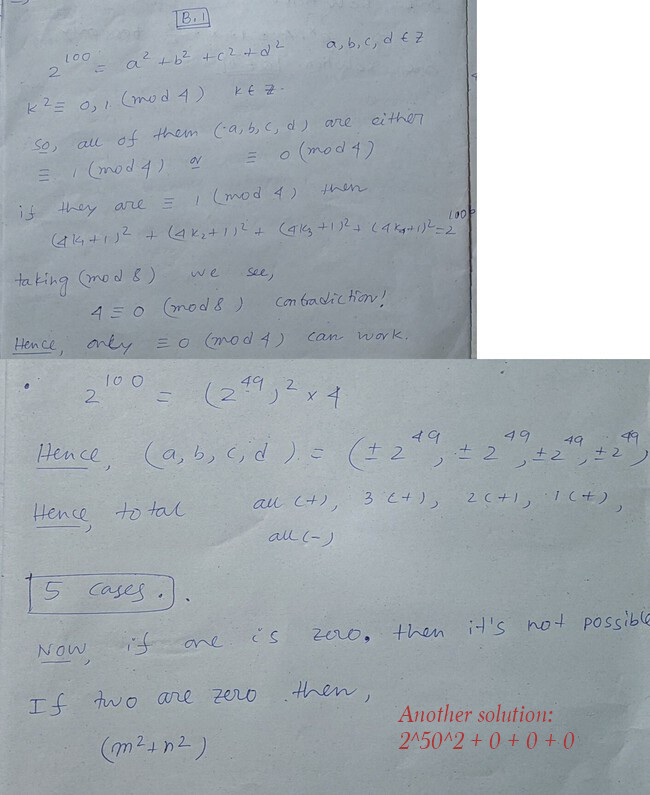 B.1
2^100 = a² + b² + c² + d² a, b, c, d ∈ Z
k² ≡ 0, 1 (mod 4) k ∈ Z.
So, all of them (a, b, c, d) are either
≡ 1 (mod 4) or ≡ 0 (mod 4)
if they are ≡ 1 (mod 4) then
(4k₁+1)² + (4k₂+1)² + (4k₃+1)² + (4k₄+1)² = 2^100
taking (mod 8) we see,
4 ≡ 0 (mod 8) contradiction!
Hence, only ≡ 0 (mod 4) can work.
2^100 = (2^49)² × 4
Hence, (a, b, c, d) = (± 2^49, ± 2^49, ± 2^49, ± 2^49)
Hence, total all (+), 3 (+), 2 (+), 1 (+),
all (-)
5 cases.
Now, if one is zero. then it's not possible
If two are zero then,
(m² + n²)
Another solution:
2^50^2 + 0 + 0 + 0